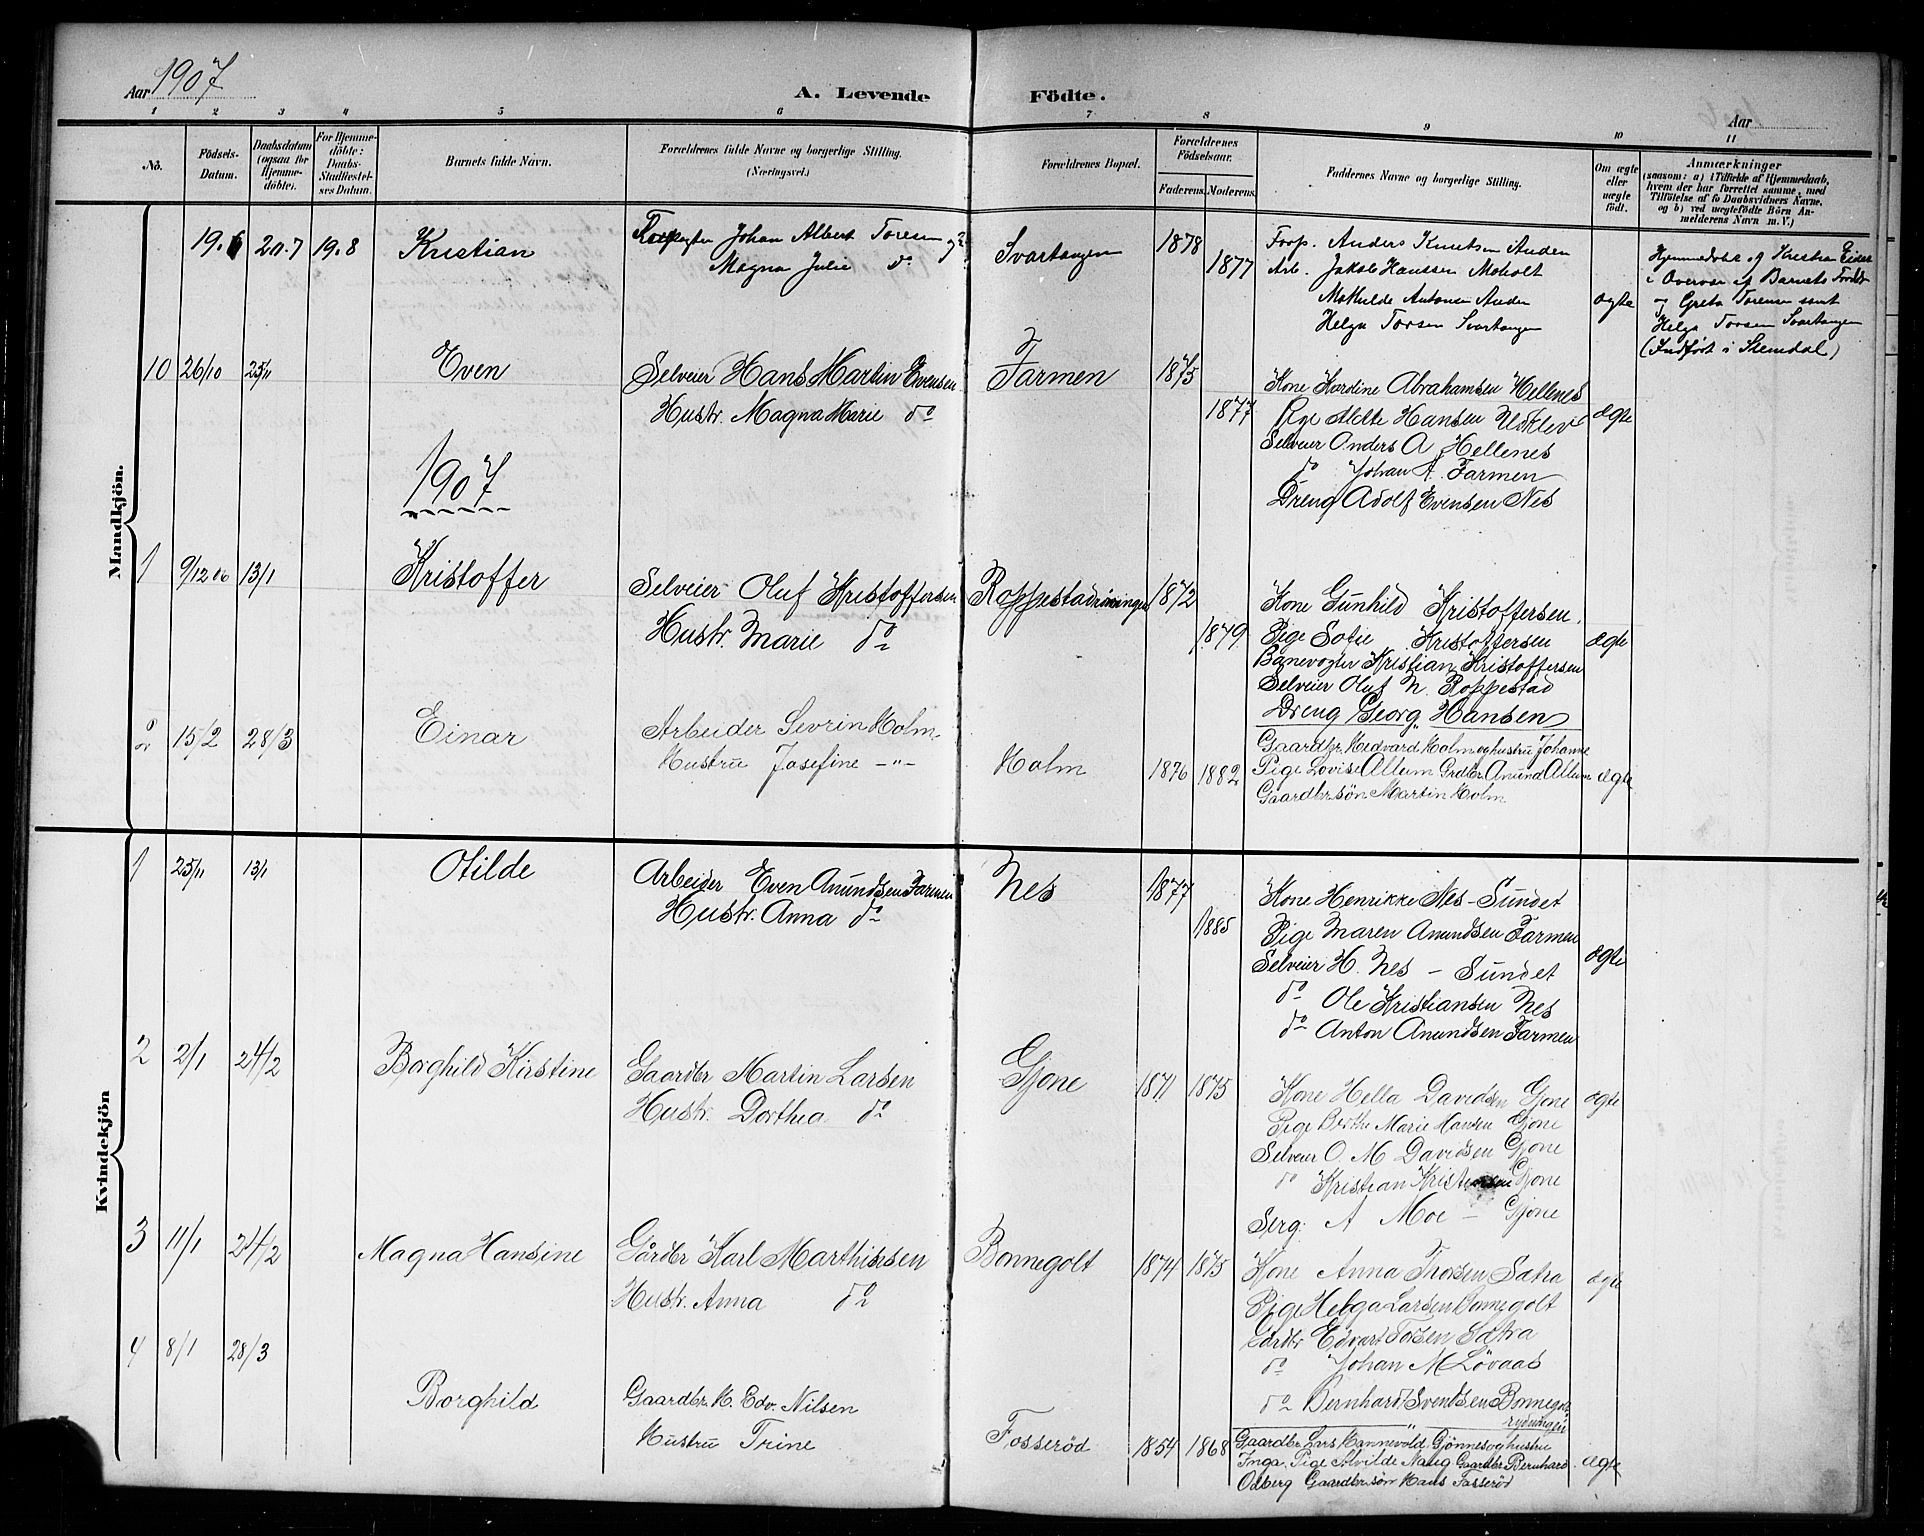 Aar 1907
A. Levende Födte.
Aar
1 2 3 4 5 6 7 8 9 10 11
No.
Födsels-Datum.
Daabsdatum (ogsaa for Hjemmedöbte).
For Hjemmedöbte: Daabs-Stadfæstelses Datum.
Barnets fulde Navn.
Forældrenes fulde Navne og borgerlige Stilling. (Næringsvei.)
Forældrenes Bopæl.
Forældrenes Födselsaar.
Faderens. Moderens.
Faddernes Navne og borgerlige Stilling.
Om ægte eller uægte födt.
Anmærkninger
(saasom: a) i Tilfælde af Hjemmedaab, hvem der har forrettet samme, med Tilföielse af to Daabsvidners Navne, og b) ved uægtefödte Börn Anmelderens Navn m. V.)
Mandkjön.
19.6 20.7 19.8 Kristian
Johan Albert Toresen og
Magna Julie do
Svartangen
1878
1877
Forp. Anders Knutsen Anden
Arb. Jakob Hanssen Moholt
Mathilde Antonsen Anden
Helga Torsen Svartangen
ægte
Hjemmedöbt af Kristian Eids
i Overvær af Barnets
og Greta Torensen samt
Helga Torsen Svartangen
(Indfört i Stemdal)
10 26/10 25/11 Even
Selveier Hans Martin Evensen
Hustr. Magna Marie do
Farmen
1875
1877
Kone Kardine Abrahamsen Hellenes
Pige Hansen
Selveier Anders A Hellenes
do Johan A. Farmen
Dreng Adolf Evensen Nes
ægte
1907
1 9/12 06 13/1 Kristoffer
Selveier Oluf Kristoffersen
Hustr. Marie do
Roppestadrøningen
1872
1879.
Kone Gunhild Kristoffersen.
Pige Sofie Kristoffersen
Banevogter Kristian Kristoffersen
Selveier Oluf N. Roppestad
Dreng Georg Hansen
ægte
2 15/2 28/3 Einar
Arbeider Sevrin Holm
Hustru Josefine -"-
Holm
1876 1882
Gaardbr. Hedvard Holm og hustru Johanne
Pige Lovise Allum Grdbr. Anund Allum
Gaardbr.søn Martin Holm
ægte
Kvindekjön
1 25/11 13/1 Otilde
Arbeider Even Anundsen Farmen
Hustr. Anna do
Nes
1877
1885
Kone Henrikke Nes - Sundet
Pige Maren Anundsen Farmen
Selveier H. Nes - Sundet
do Ole Kristiansen Nes
do Anton Anundsen Farmen
ægte
2 2/1 24/2 Borghild Kirstine
Gaardbr Martin Larsen
Hustr. Dorthea do
Gjone
1871 1875
Kone Hella Davidsen Gjone
Pige Berthe Marie Hansen Gjone
Selveier O. M Davidsen Gjone
do Kristian Kristiansen Gjone
Serg. A Moe - Gjone
ægte
3 11/1 24/2 Magna Hansine
Gårdbr Karl Marthinsen
Hustr. Anna do
Bonnegolt
1874 1875
Kone Anna Thorsen Sætra
Pige Helga Larsen Bonnegolt
Gårdbr Edvart Torsen Sætra
do Johan M Lövaas
do Bernhard Svendsen Bonnegolt
rydningen
ægte
4 8/1 28/3 Borghild
Gaardbr. H. Edv. Nilsen
Hustru Trine
Fosserød
1854 1868
Gaardbr. Lars Hannevold Gjønnes og hustru
Inga. Pige Alvilde Naug Gaardbr Bernhard
Odberg Gaardbr.søn Hans Fosserød
ægte